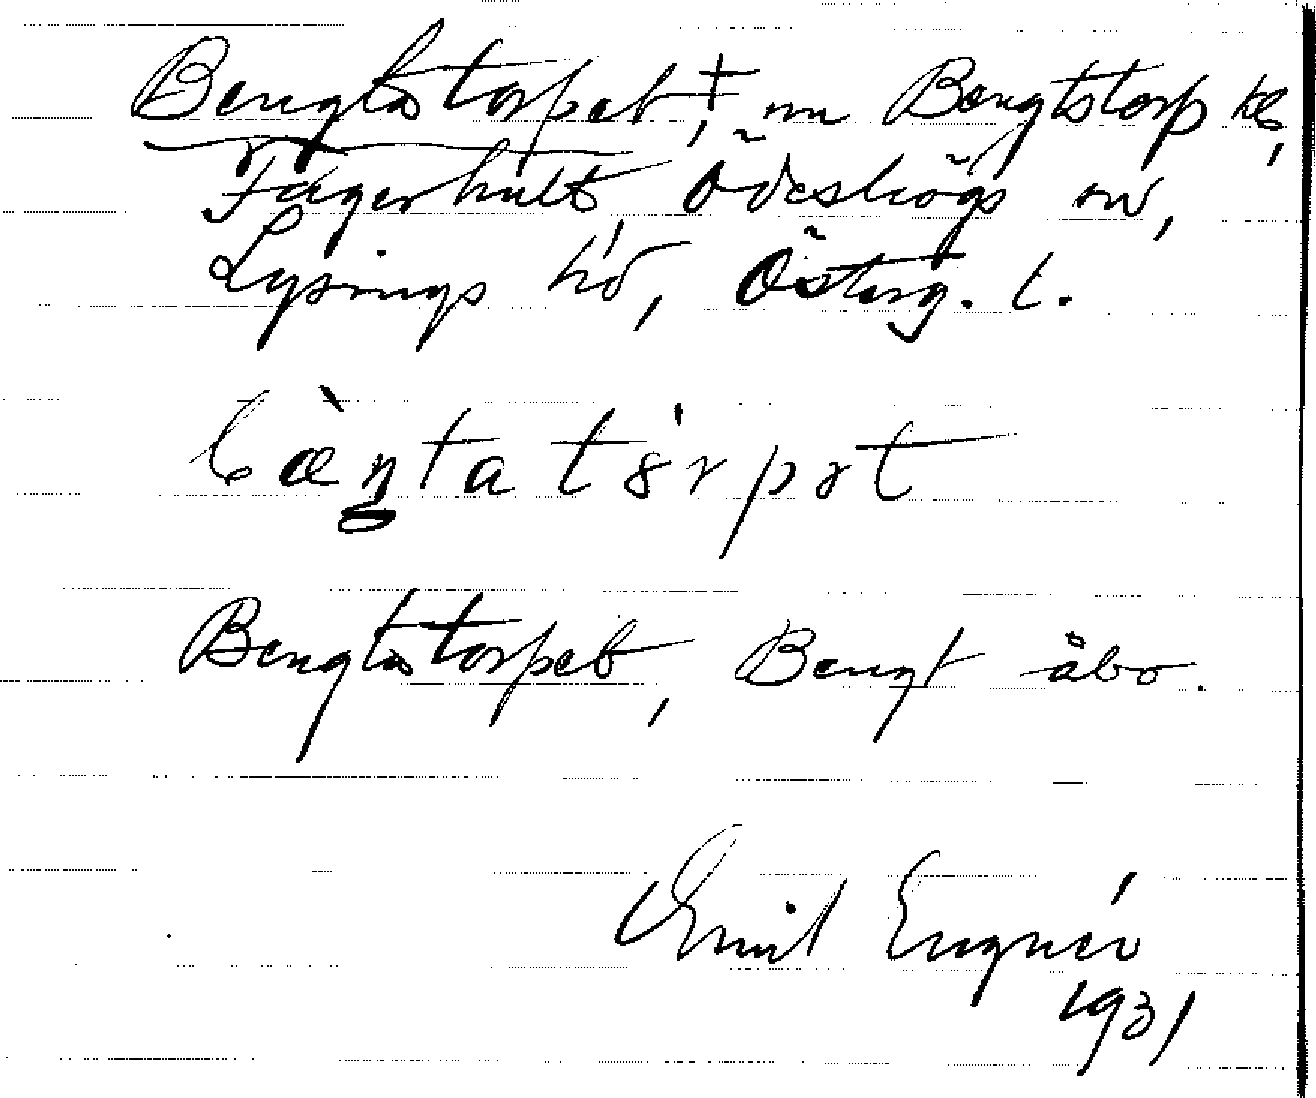 Bengtstorpet ‡, nu Bengtstorp hg,
Fågerhult Ödeshögs sn,
Lysings hd, Österg. l.
bæ̀ŋta tȯrpət
Bengtstorpet, Bengt åbo.
Emil Engnér
1931